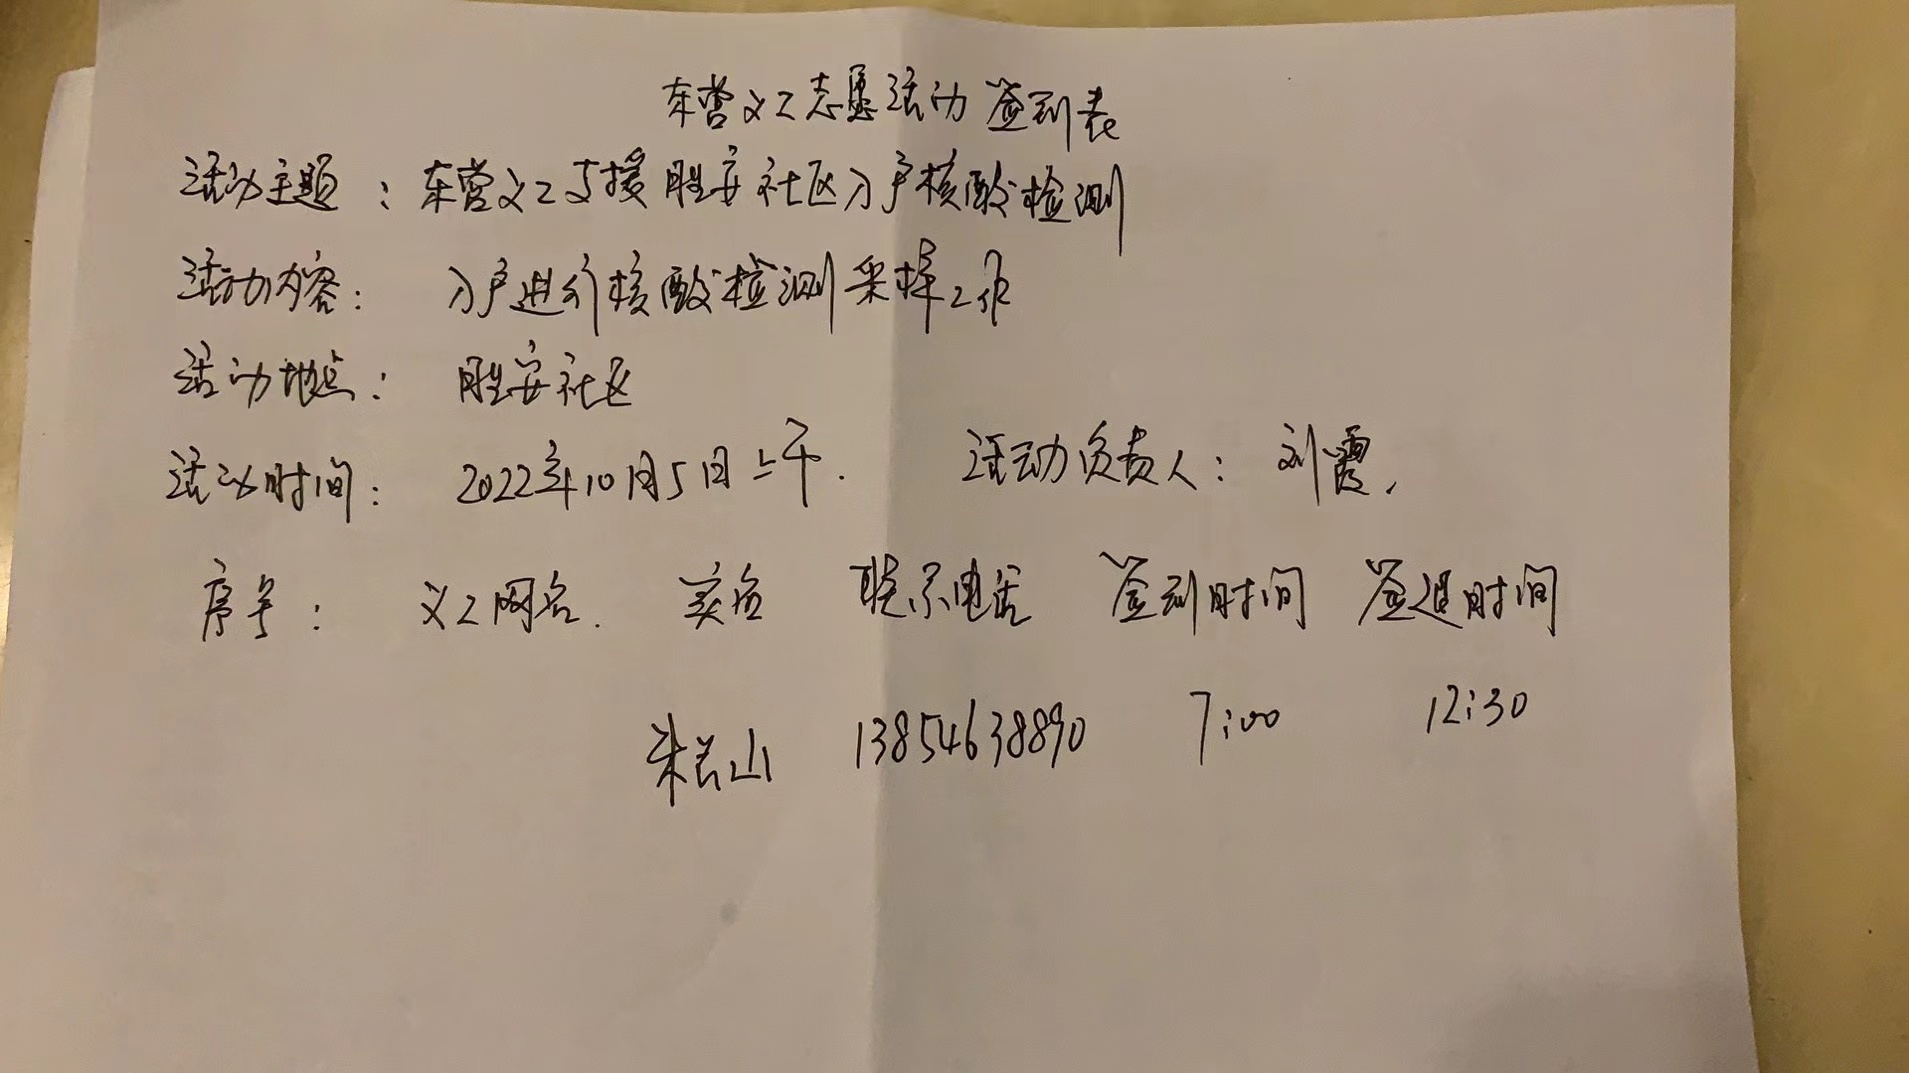 东营义工志愿活动签到表
活动主题：东营义工支援胜安社区入户核酸检测
活动内容：入户进行核酸检测采样工作
活动地点：胜安社区
活动时间：2022年10月5日上午. 活动负责人：刘霞.
序号：义工网名. 实名 联系电话 签到时间 签退时间
山 13854638890 7:00 12:30